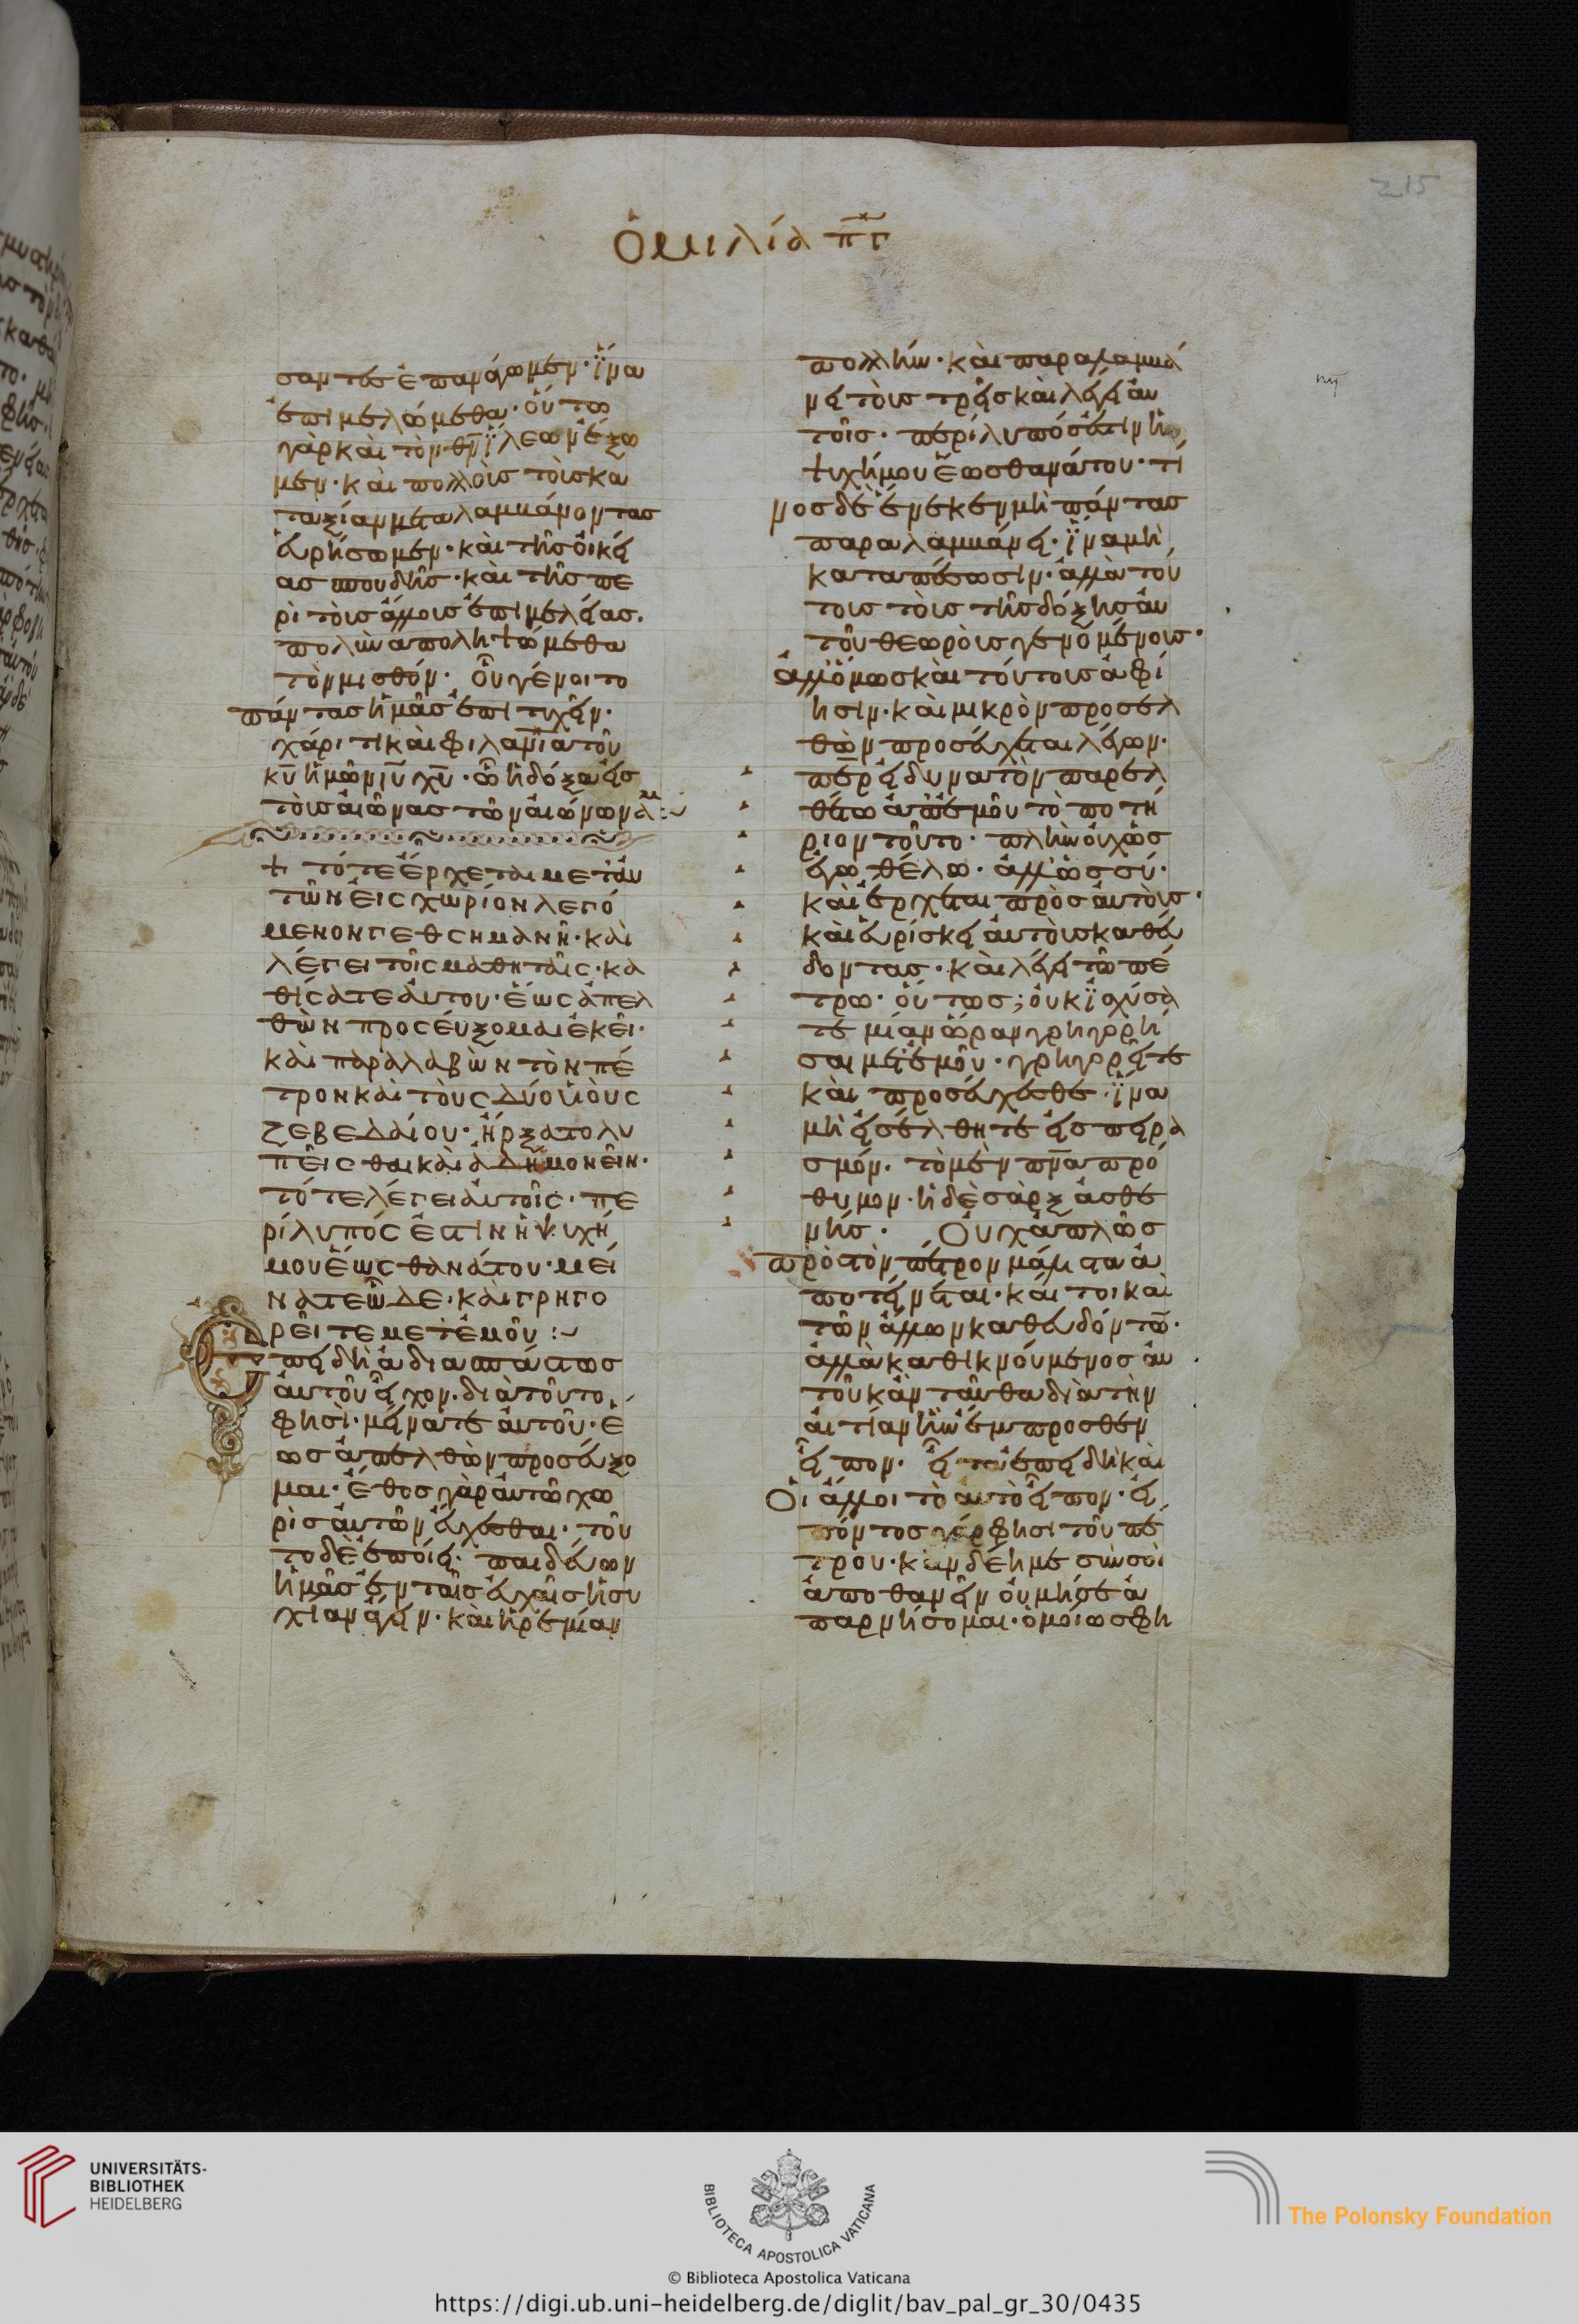 215
ὁμιλία πγ
σαντες ἐπανάγωμεν· ἵνα
ἐπιμελώμεθα· οὕτω
γὰρ καὶ τὸν θν ἵλεων ἕξο
μεν· καὶ πολλοῖς τοῖς κα
ταξίαν μεταλαμβάνοντας
εὑρήσωμεν· καὶ τῆς οἰκεί
ας σπουδῆς· καὶ τῆς πε
ρὶ τοῖς ἄλλοις ἐπιμελείας.
πολὺν ἀποληψώμεθα
τὸν μισθόν· οὗ γένοιτο
πάντας ἡμᾶς ἐπιτυχεῖν·
χάριτι καὶ φιλανίᾳ τοῦ
κυ ἡμῶν ιυ χυ· ᾧ ἡ δόξα εἰς
τοὺς αἰῶνας τῶν αἰώνων ἀμ :~
+ τότε ἔρχεται μετ' αὐ
τῶν εἰς χωρίον λεγό
μενον γεθσημανῆ· καὶ
λέγει τοῖς μαθηταῖς· κα
θίσατε αὐτοῦ· ἕως ἀπελ
θὼν προσεύξομαι ἐκεῖ·
καὶ παραλαβὼν τὸν πέ
τρον καὶ τοὺς δύο υἱοὺς
ζεβεδαίου· ἤρξατο λυ
πεῖσθαι καὶ ἀδημονεῖν·
τότε λέγει αὐτοῖς· πε
ρίλυπός ἐστιν ἡ ψυχή
μου ἕως θανάτου· μεί
νατε ὧδε· καὶ γρηγο
ρεῖτε μετ' ἐμοῦ :~
Ἐπειδὴ ἀδιασπάστως
αὐτοῦ εἶχον· διὰ τοῦτο
φησὶ· μείνατε αὐτοῦ· ἕ
ως ἀπελθὼν προσεύξο
μαι· ἔθος γὰρ αὐτῷ χω
ρὶς αὐτῶν εὔχεσθαι· τοῦ
το δὲ ἐποίει· παιδεύων
ἡμᾶς ἐν ταῖς εὐχαῖς ἡσυ
χίαν ἄγειν· καὶ ἠρεμίαν
πολλήν· καὶ παραλαμβά
νει τοὺς τρεῖς καὶ λέγει αὐ
τοῖς· περίλυπός ἐστιν ἡ
ψυχή μου ἕως θανάτου· τί
νος δὲ ἕνεκεν μὴ πάντας
παραλαμβάνει· ἵνα μὴ
καταπέσωσιν· ἀλλὰ τού
τους τοὺς τῆς δόξης αὐ
τοῦ θεωροὺς γενομένους·
ἀλλ' ὅμως καὶ τούτους ἀφί
ησιν· καὶ μικρὸν προσελ
θὼν προσεύχεται λέγων·
περ εἰ δυνατὸν παρελ
θέτω ἀπ' ἐμοῦ τὸ ποτή
ριον τοῦτο· πλὴν οὐχ ὡς
ἐγὼ θέλω· ἀλλ' ὡς σύ·
καὶ ἔρχεται πρὸς αὐτούς·
καὶ εὑρίσκει αὐτοὺς καθεύ
δοντας· καὶ λέγει τῷ πέ
τρῳ· οὕτως; οὐκ ἰσχύσα
τε μίαν ὥραν γρηγορῆ
σαι μετ' ἐμοῦ· γρηγορεῖτε
καὶ προσεύχεσθε· ἵνα
μὴ εἰσέλθητε εἰς πειρα
σμόν· τὸ μὲν πνα πρό
θυμον· ἡ δὲ σὰρξ ἀσθε
νής· Οὐχ ἁπλῶς
πρὸς τὸν πέτρον μάλιστα ἀ
ποτείνεται· καίτοι καὶ
τῶν ἄλλων καθευδόντω·
ἀλλὰ καθικνούμενος αὐ
τοῦ κἀνταῦθα διὰ τὴν
αἰτίαν ἣν ἔμπροσθεν
εἶπον· εἶτα ἐπειδὴ καὶ
Οἱ ἄλλοι τὸ αὐτὸ εἶπον· εἰ
πόντος γάρ φησι τοῦ πέ
τρου· κἂν δέῃ με σὺν σοὶ
ἀποθανεῖν οὐ μή σε ἀ
παρνήσομαι· ὁμοίως φη
UNIVERSITÄTS-
BIBLIOTHEK
HEIDELBERG
BIBLIOTECA APOSTOLICA VATICANA
The Polonsky Foundation
© Biblioteca Apostolica Vaticana
https://digi.ub.uni-heidelberg.de/diglit/bav_pal_gr_30/0435